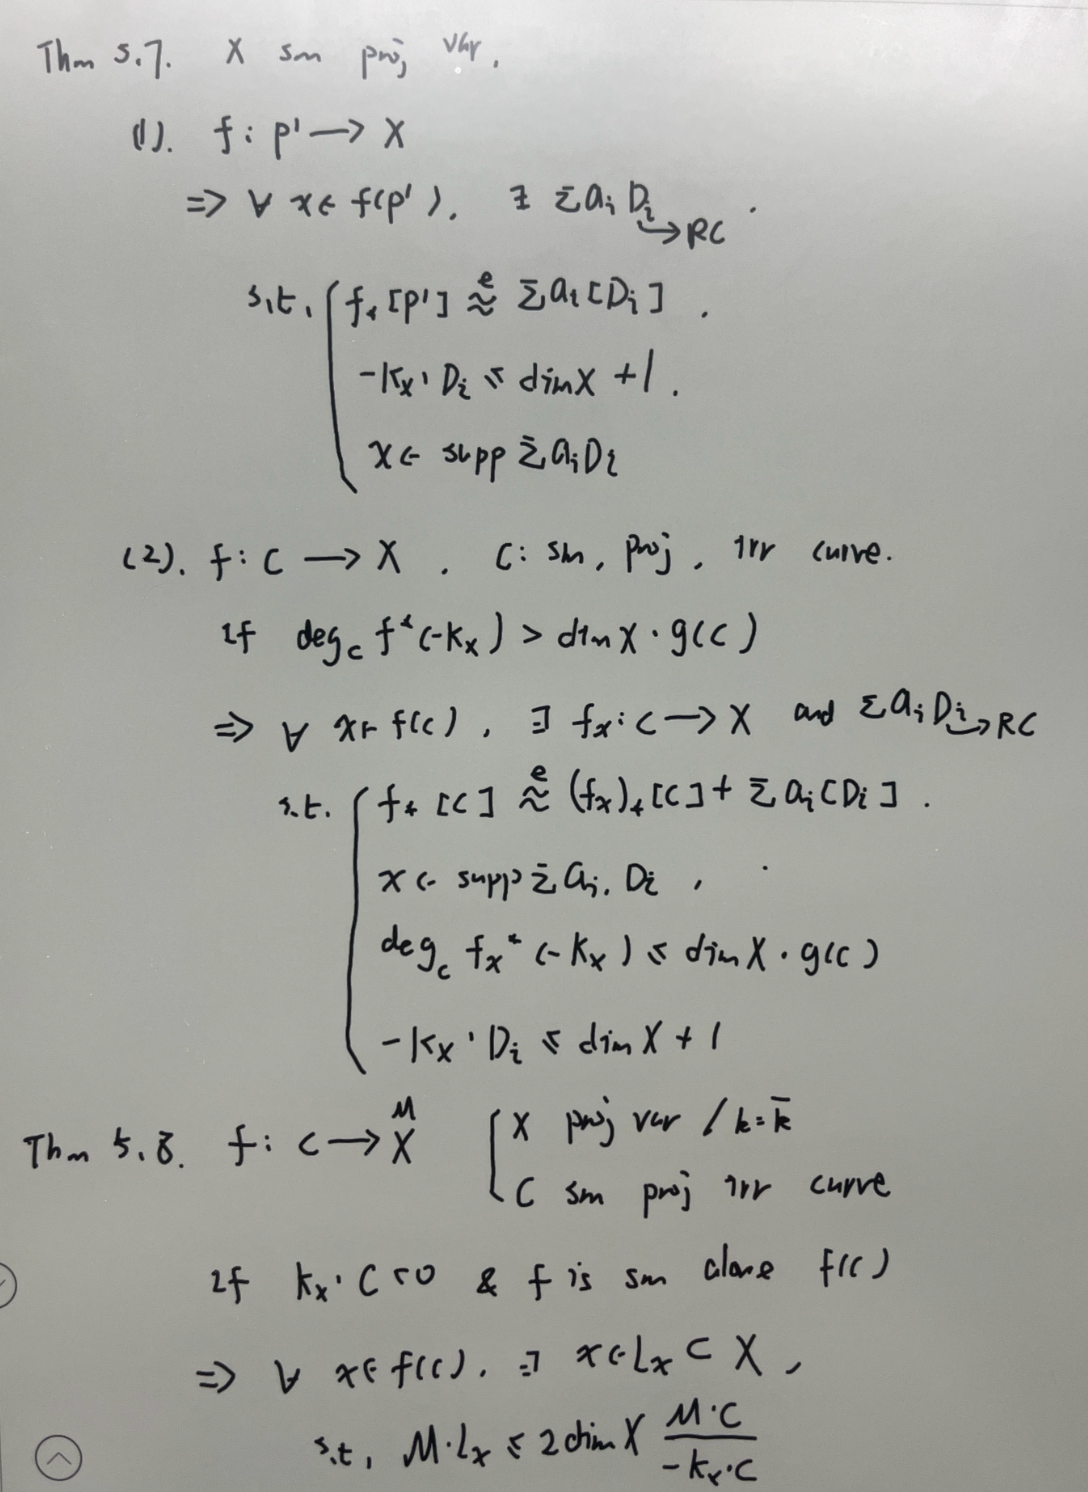 Thm 5.7. X sm proj var.
(1). f: P¹ → X
⇒ ∀ x ∈ f(P¹). ∃ Σ aᵢ Dᵢ ↪ RC
s.t. { f_*[P¹] ≈^e Σ aᵢ [Dᵢ].
-K_X · Dᵢ ≤ dim X + 1.
x ∈ supp Σ aᵢ Dᵢ
(2). f: C → X. C: sm, proj, irr curve.
If deg_C f^*(-K_X) > dim X · g(C)
⇒ ∀ x ∈ f(C), ∃ f_x: C → X and Σ aᵢ Dᵢ ↪ RC
s.t. { f_*[C] ≈^e (f_x)_*[C] + Σ aᵢ [Dᵢ].
x ∈ supp Σ aᵢ. Dᵢ,
deg_C f_x^*(-K_X) ≤ dim X · g(C)
-K_X · Dᵢ ≤ dim X + 1
M
Thm 5.8. f: C → X { X proj var / k = k̄
C sm proj irr curve
If K_X · C < 0 & f is sm alone f(C)
⇒ ∀ x ∈ f(C). ∃ x ∈ L_x ⊂ X,
s.t, M · L_x ≤ 2 dim X \frac{M · C}{-K_X · C}